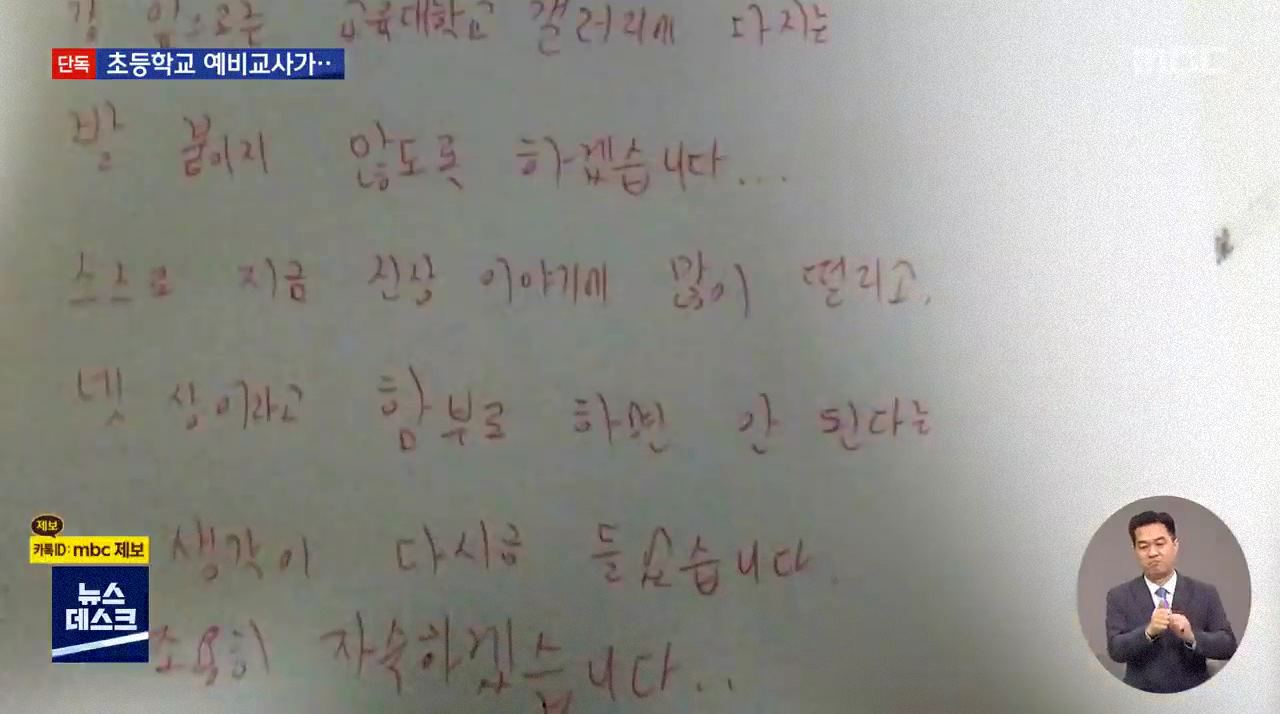 앞으로는 교육대학교 갤러리에 다시는
단독 초등학교 예비교사가··
발 붙이지 않도록 하겠습니다....
스스로 지금 신상 이야기에 많이 떨리고,
넷 상이라고 함부로 하면 안 된다는
생각이 다시금 들었습니다.
제보
카톡ID: mbc 제보
뉴스
데스크
조용히 자숙하겠습니다..